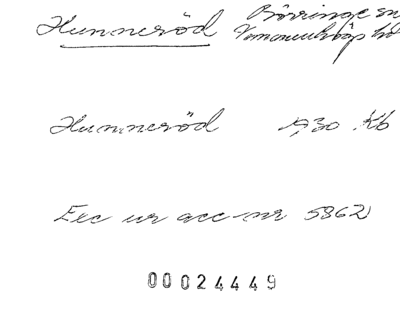 Hunneröd Börringe sn
Vemmenhögs hd
Hunneröd 1930 Kb
Exc ur acc-nr 5862
00024449